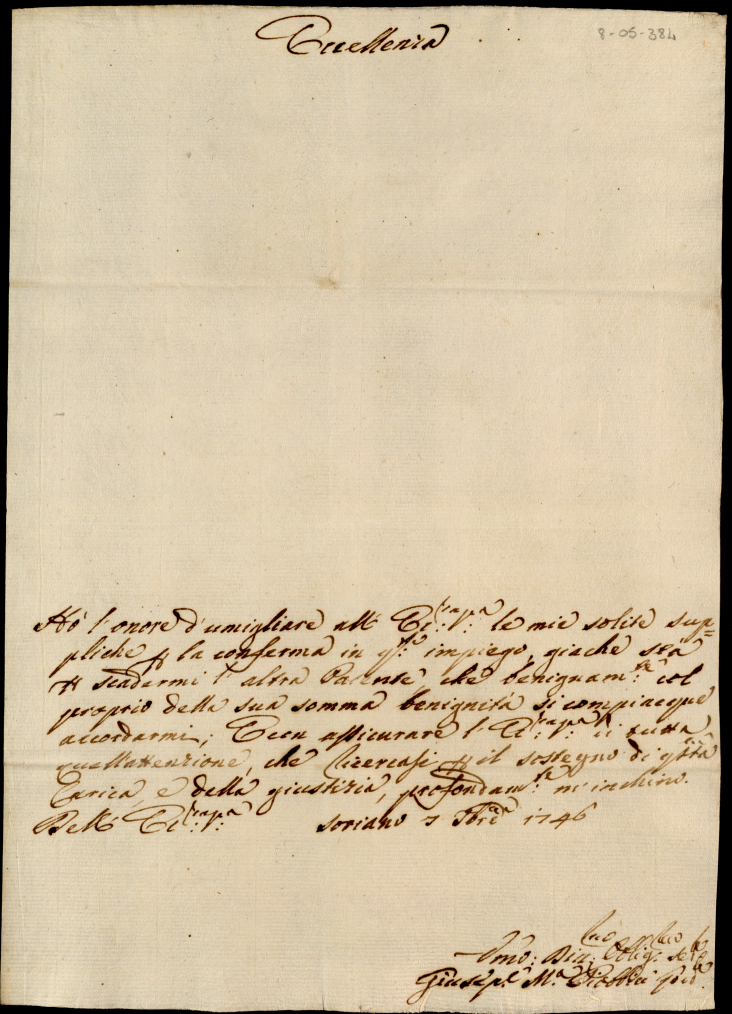 Eccellenza
8-05-384
Hò l'onore d'umigliare all' Ecc:za V:ra le mie solite sup=
pliche p la conferma in q:to impiego, giache stà
p scadermi l'altra Patente che benignam:te col
proprio della sua somma benignità si compiacque
accordarmi; E con assicurare l'Ecc:za V:ra di tutta
quell'attenzione, che ricercasi p il sostegno di q:sta
Carica, e della giustizia, profondam:te m'inchino.
Dell' Ecc:za V:ra Soriano 7 1746
Umo: Div: Oblig: Ser:
Giusep:e M:a